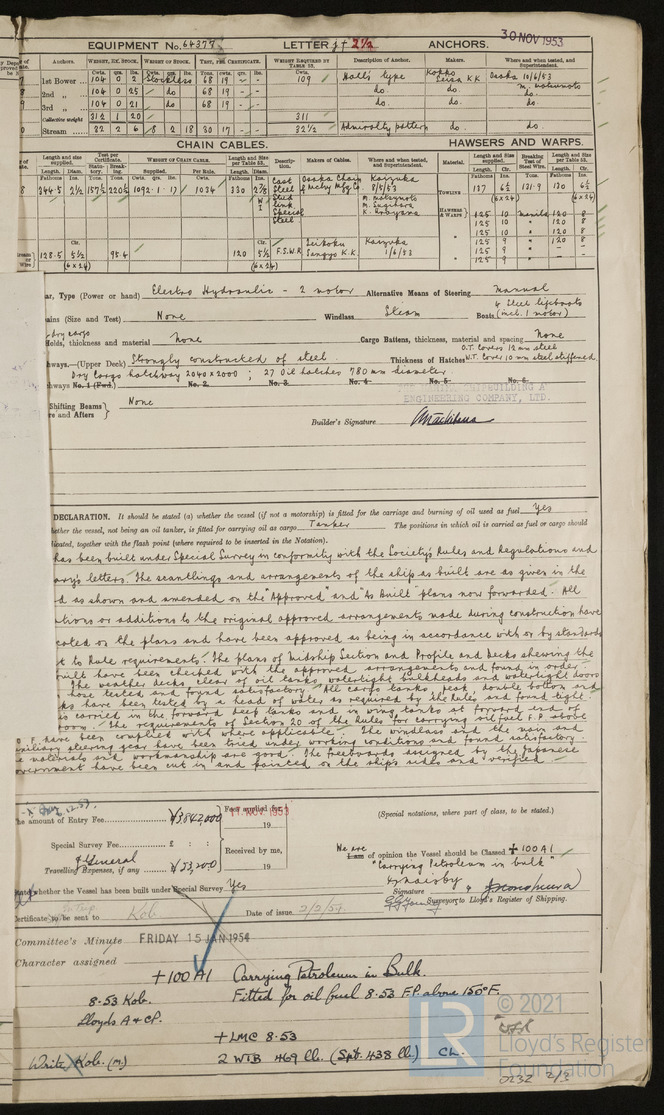 30 NOV 1953
EQUIPMENT No. 64377 LETTER j† 2½ ANCHORS.
Anchors. WEIGHT, EX. STOCK. WEIGHT OF STOCK. TEST, PER CERTIFICATE. WEIGHT REQUIRED BY TABLE 53. Description of Anchor. Makers. Where and when tested, and Superintendent.
Cwts. qrs. lbs. Cwts. qrs. lbs. Tons. cwts. qrs. lbs. Cwts.
1st Bower 104 0 2 Stockless 68 19 - - 109 Hall's type Osaka 10/6/53
2nd " 104 0 25 do 68 19 - - do. do. M. Matsumoto do.
3rd " 104 0 21 do 68 19 - - do. do. do.
Collective weight 312 1 20 311
Stream 32 2 6 8 2 18 30 17 - - 32½ Admiralty pattern do. do.
CHAIN CABLES. HAWSERS AND WARPS.
Length and size supplied. Test per Certificate. WEIGHT OF CHAIN CABLE. Length and Size per Table 53. Description. Makers of Cables. Where and when tested, and Superintendent. Material. Length and size supplied. Breaking Test of Steel Wire. Length and Size per Table 53.
Fathoms Diam. Supplied. Per Rule. Length. Diam.
344.5 2½ 157½ 220½ 1092.1.17 1034 330 2⅞ Cast Steel Stud Link Special Steel Osaka Chain & Mchy Mfg Co Kaizuka 8/5/53 TOWLINE 137 6½ (6x24) 131.9 130 6½ (6x24)
HAWSERS & WARPS 125 10 Manila 120 8
" 125 10 " 120 8
" 125 10 " 120 8
125 9 " 120 8
" 125 9 "
" 125 9 "
128.5 5½ (6x24) 95.4 120 5½ (6x24) F.S.W.R. Sangyo K.K. Kaizuka 1/6/53
ar, Type (Power or hand) Electro Hydraulic - 2 motor Alternative Means of Steering Manual
ains (Size and Test) None Windlass Steam Boats 4 Steel lifeboats (incl. 1 motor)
dry cargo
Holds, thickness and material None Cargo Battens, thickness, material and spacing None
hways.—(Upper Deck) Strongly constructed of steel. Thickness of Hatches O.T. Covers 12 mm steel W.T. Cover 10 mm steel stiffened
Dry Cargo hatchway 2040 x 2000 ; 27 Oil hatches 780 mm diameter
hways No. 1 (Fwd.) No. 2. No. 3. No. 4 No. 5 No. 6
Shifting Beams re and Afters } None
SHIPBUILDING & ENGINEERING COMPANY, LTD.
Builder's Signature
DECLARATION. It should be stated (a) whether the vessel (if not a motorship) is fitted for the carriage and burning of oil used as fuel Yes
hether the vessel, not being an oil tanker, is fitted for carrying oil as cargo Tanker The positions in which oil is carried as fuel or cargo should
licated, together with the flash point (where required to be inserted in the Notation).
has been built under Special Survey in conformity with the Society's Rules and Regulations and
ary's letters. The scantlings and arrangements of the ship as built are as given in the
d as shown and amended on the "Approved" and "As Built" plans now forwarded. All
ations or additions to the original approved arrangements made during construction have
cated on the plans and have been approved as being in accordance with or by standards
t to Rule requirements. The plans of Midship Section and Profile and Decks shewing the
built have been checked with the approved arrangements and found in order
The weather decks clear of oil tanks, watertight bulkheads and watertight doors
hose tested and found satisfactory. All cargo tanks, peak, double bottom and
ks have been tested by a head of water as required by the Rules and found tight
is carried in the forward deep tanks and in wing tanks at forward end of
room. The requirements of Section 20 of the Rules for carrying oil fuel F.P. above
F. have been complied with where applicable. The windlass and the main and
auxiliary steering gear have been tried under working conditions and found satisfactory.
e materials and workmanship are good. The freeboards assigned by the Japanese
overnment have been cut in and painted on the ship's sides and verified
The amount of Entry Fee ¥3,842,000 Fees applied for, 11 NOV 1953 19
(Special notations, where part of class, to be stated.)
Special Survey Fee £ : : Received by me,
& General
Travelling Expenses, if any ¥ 53,200 19
We are
I am of opinion the Vessel should be Classed ✠ 100 A1
"Carrying Petroleum in bulk"
State whether the Vessel has been built under Special Survey Yes
Signature
Surveyor to Lloyd's Register of Shipping.
Certificate to be sent to Kob. Date of issue 2/2/54
Committee's Minute FRIDAY 15 JAN 1954
Character assigned
+100 A1 Carrying Petroleum in Bulk.
8.53 Kob. Fitted for oil fuel 8.53 F.P. above 150°F.
Lloyds A & CP.
+ LMC 8.53
Write Kob. (M.) 2 WTB 469 lb. (Spt. 438 lb.) CL.
LR
© 2021
Lloyd's Register
Foundation
0232 2/3